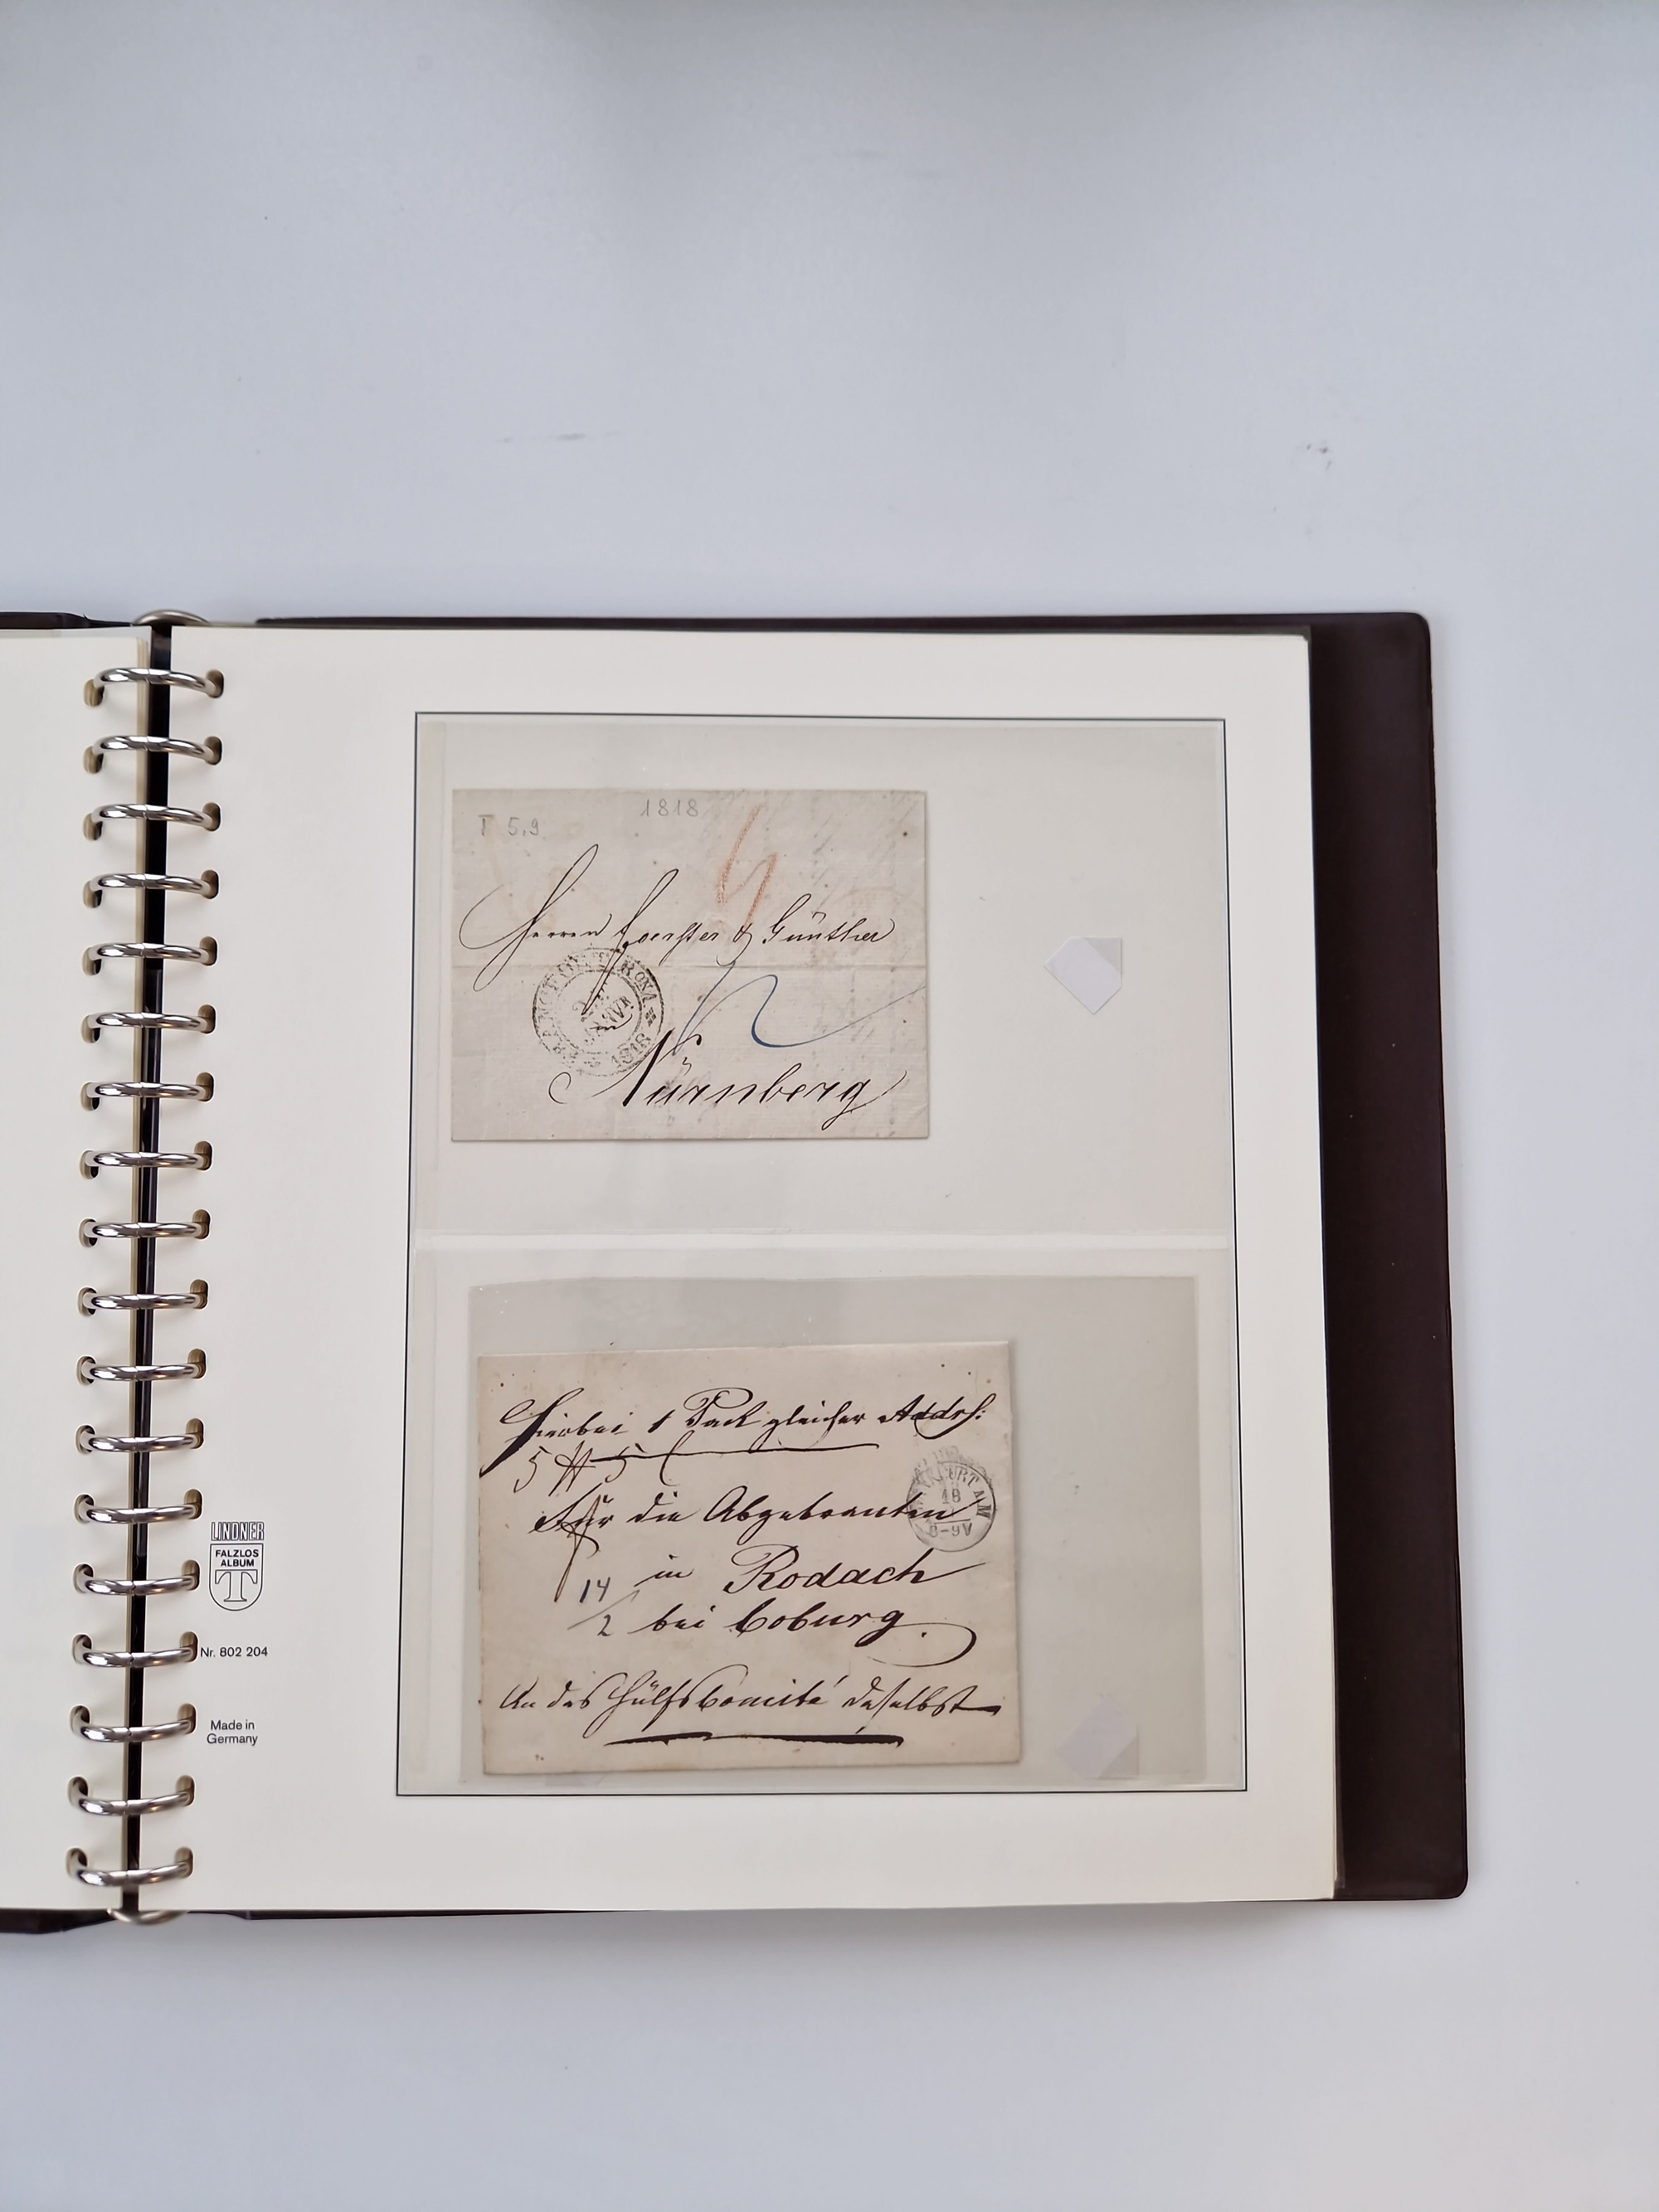 1818
T 5.9
Herren Foerster & Günther
1818
Nürnberg
Hierbei 1 Pack gleicher Addrs:
5 5
FURT A M
18
8-9V
Für die Abgebrannten
in Rodach
14
2
bei Coburg.
An das Hülfs Comité daselbst
LINDNER
FALZLOS
ALBUM
T
Nr. 802 204
Made in
Germany